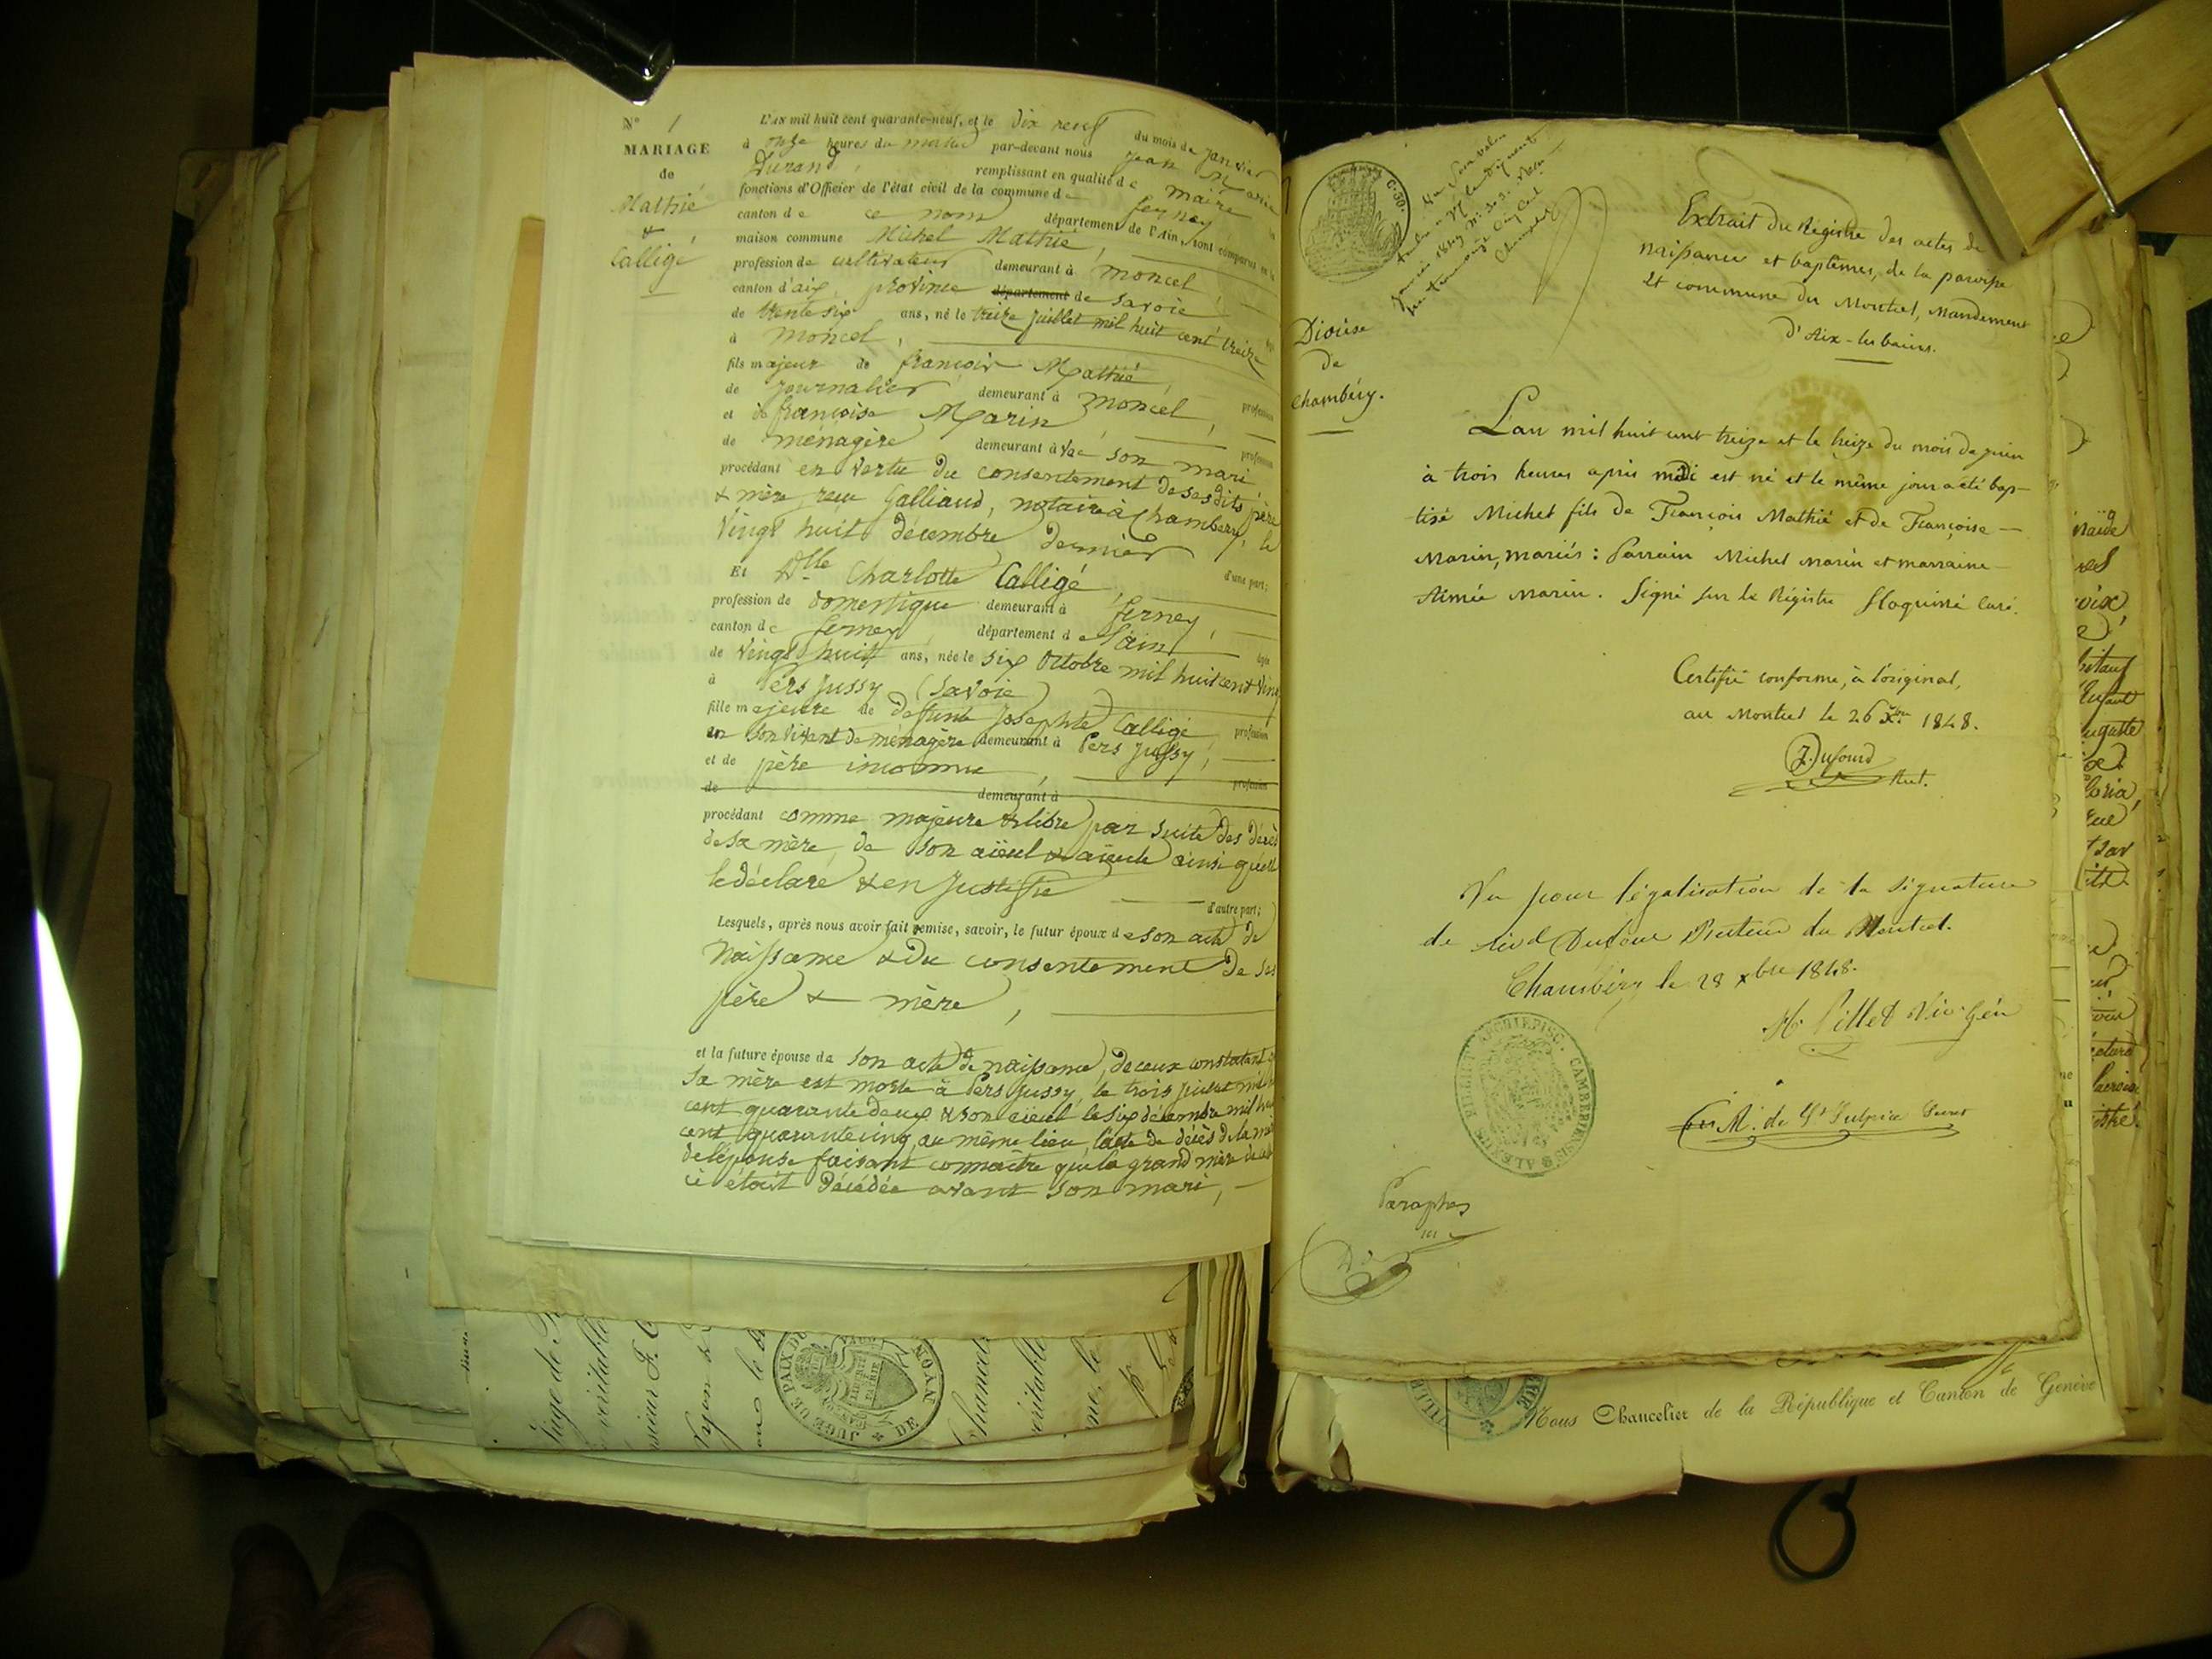 N° 1
MARIAGE
de
Mathié
&
Calligé
L'an mil huit cent quarante-neuf, et le dix neuf du mois de janvier
à onze heures du matin par-devant nous Jean Marie
Durand remplissant en qualité de maire
fonctions d'Officier de l'état civil de la commune de ferney
canton de ce nom département de l'Ain, sont comparus en la
maison commune Michel Mathié,
profession de cultivateur demeurant à Moncel,
canton d'aix, province département de Savoie
de trente six ans, né le treize juillet mil huit cent treize
à Moncel,
fils majeur de françois Mathié,
de journalier demeurant à Moncel, profession
et de françoise Marin,
de ménagère demeurant à vec son mari profession
procédant en vertu du consentement de ses dits père
& mère, reçu Galliand, notaire à Chambery, le
vingt huit décembre dernier
d'une part;
Et Dlle Charlotte Calligé,
profession de domestique demeurant à ferney,
canton de ferney, département de l'ain
de vingt huit ans, née le six Octobre mil huit cent vingt
à Pers Jussy (Savoie)
fille majeure de defunte Josephte Calligé, profession
en son vivant de ménagère demeurant à Pers Jussy,
et de père inconnu,
de demeurant à profession
procédant comme majeure & libre par suite des décès
de sa mère, de son aïeul & aïeule ainsi qu'elle
le déclare & en justifie
d'autre part;
Lesquels, après nous avoir fait remise, savoir, le futur époux de son acte de
naissance & du consentement de ses
père & mère,
et la future épouse de son acte de naissance, de ceux constatant q
sa mère est morte à Pers Jussy, le trois juillet mil
cent quarante deux & son aïeul le six décembre mil hui
cent quarante cinq au même lieu, l'acte de décès de la mè
de l'épouse faisant connaître que la grand mère de cel
ci était décédée avant son mari,
C. 30.
Diocèse
de
Chambéry.
Extrait du Régistre des actes de
naissance et baptêmes, de la paroisse
et commune du Montcel, Mandement
d'Aix-les bains.
L'an mil huit cent treize et le treize du mois de juin
à trois heures après midi est né et le même jour a été bap-
tisé Michel fils de François Mathié et de Françoise
Marin, mariés : Parrain Michel Marin et marraine
Aimée Marin. Signé sur le Régistre Floquiné Curé.
Certifié conforme, à l'original,
au Montcel le 26 Xbre 1848.
J. Dufourd
Rect.
Vu pour légalisation de la signature
de Révd Dufour Recteur du Montcel.
Chambéry le 28 xbre 1848.
H. Pillet Vic. Gén
M. de St Sulpice Secret
Paraphes
ALEXIUS BILLIET ARCHIEPISC. CAMBERIENSIS
JUGE DE PAIX DU
LIBERTÉ
PATRIE
Nous Chancelier de la République et Canton de Genève